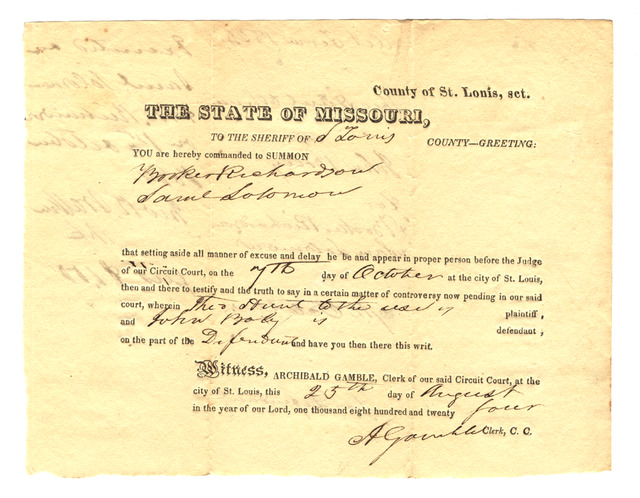 County of St. Louis, sct.
THE STATE OF MISSOURI,
TO THE SHERIFF OF St Louis COUNTY—GREETING:
YOU are hereby commanded to SUMMON
Booker Richardson
Saml Solomon
that setting aside all manner of excuse and delay he be and appear in proper person before the Judge
of our Circuit Court, on the 7th day of October at the city of St. Louis,
then and there to testify and the truth to say in a certain matter of controversy now pending in our said
court, wherein Theo Hunt to the use of plaintiff,
and John Boly is defendant,
on the part of the Defendant and have you then there this writ.
Witness, ARCHIBALD GAMBLE, Clerk of our said Circuit Court, at the
city of St. Louis, this 25th day of August
in the year of our Lord, one thousand eight hundred and twenty four
A Gamble Clerk, C. C.